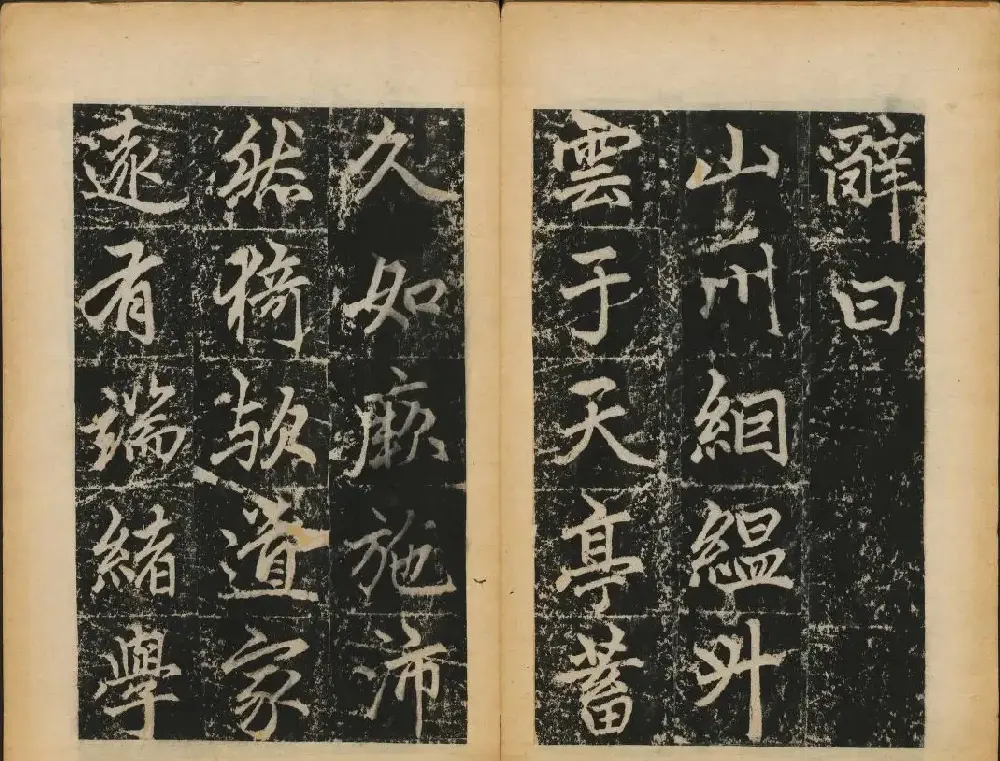 辭曰
山川絪縕升
雲于天亭蓄
久如厥施沛
然猗歟道家
遠有端緒學